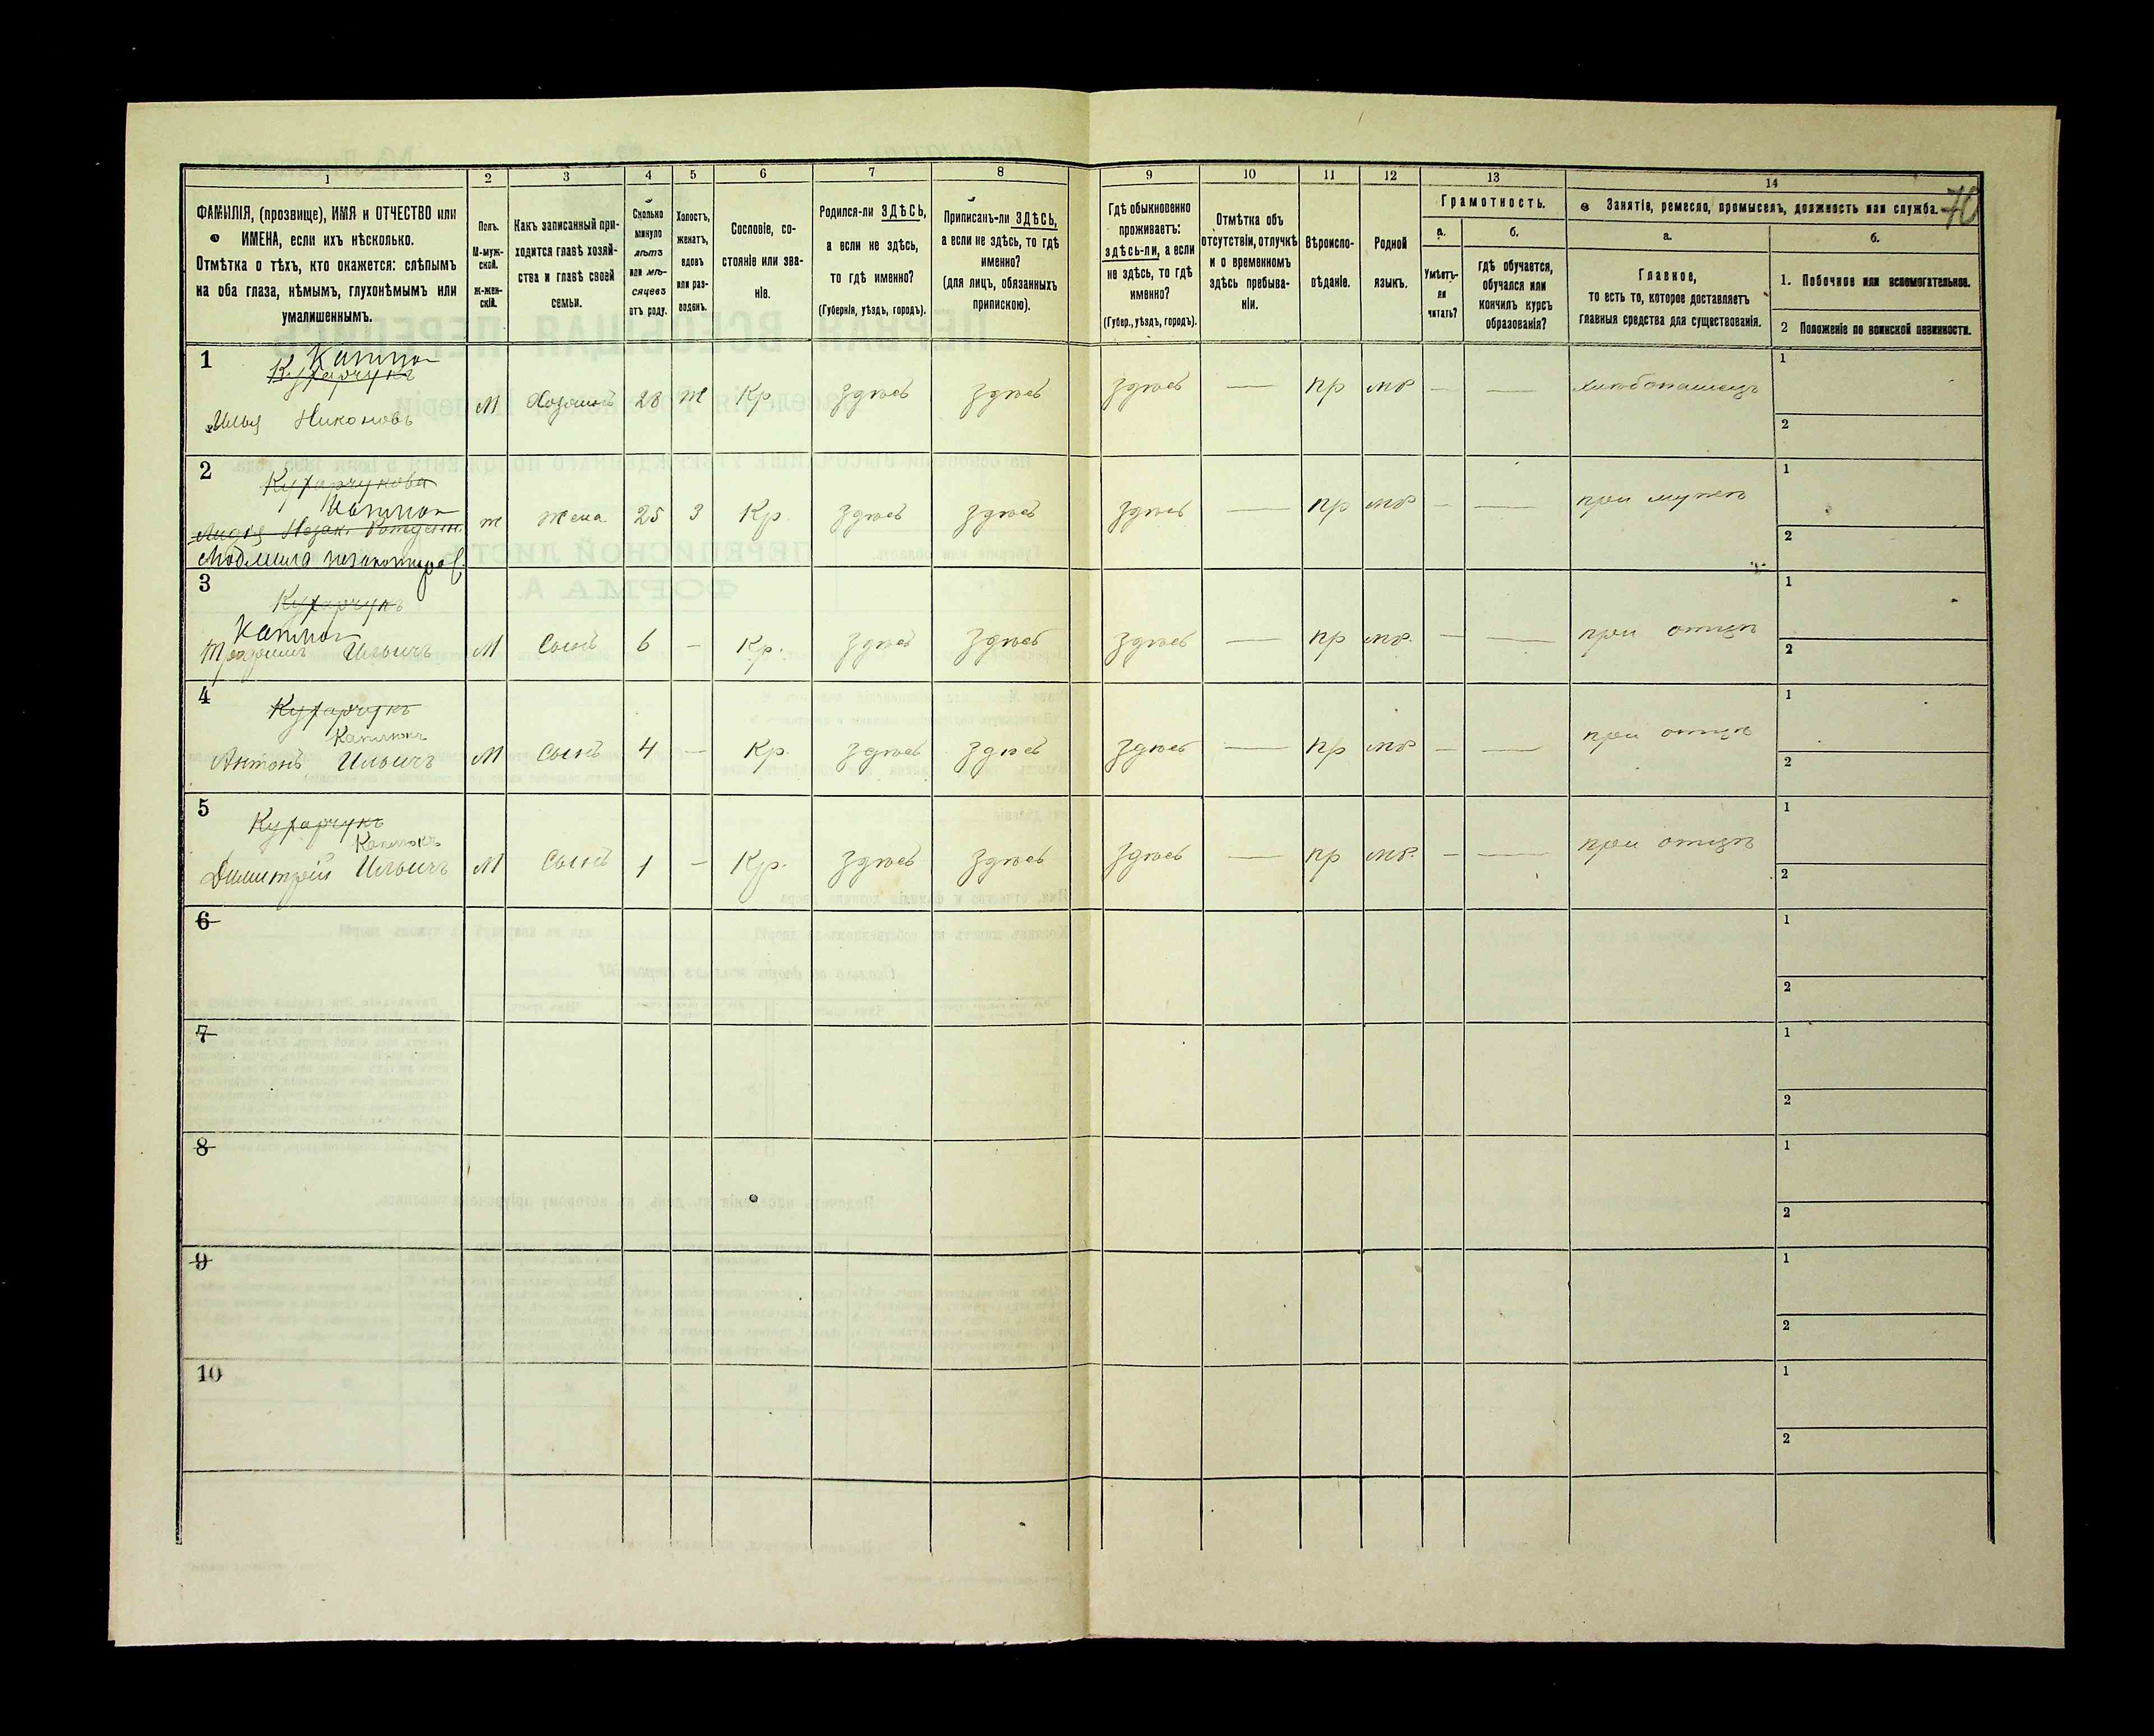 70
1
2
3
4
5
6
7
8
9
10
11
12
13
14
ФАМИЛІЯ, (прозвище), ИМЯ и ОТЧЕСТВО или
ИМЕНА, если ихъ нѣсколько.
Отмѣтка о тѣхъ, кто окажется: слѣпымъ
на оба глаза, нѣмымъ, глухонѣмымъ или
умалишеннымъ.
Полъ.
М-муж-
ской.
Ж-жен-
скій.
Какъ записанный при-
ходится главѣ хозяй-
ства и главѣ своей
семьи.
Сколько
минуло
лѣтъ
или мѣ-
сяцевъ
отъ роду.
Холостъ,
женатъ,
вдовъ
или раз-
веденъ.
Сословіе, со-
стояніе или зва-
ніе.
Родился-ли ЗДѢСЬ,
а если не здѣсь,
то гдѣ именно?
(Губернія, уѣздъ, городъ).
Приписанъ-ли ЗДѢСЬ,
а если не здѣсь, то гдѣ
именно?
(для лицъ, обязанныхъ
припискою).
Гдѣ обыкновенно
проживаетъ:
здѣсь-ли, а если
не здѣсь, то гдѣ
именно?
(Губер., уѣздъ, городъ).
Отмѣтка объ
отсутствіи, отлучкѣ
и о временномъ
здѣсь пребыва-
ніи.
Вѣроиспо-
вѣданіе.
Родной
языкъ.
Грамотность.
а.
Умѣетъ-
ли
читать?
б.
гдѣ обучается,
обучался или
кончилъ курсъ
образованія?
Занятіе, ремесло, промыселъ, должность или служба.
а.
Главное,
то есть то, которое доставляетъ
главныя средства для существованія.
б.
1. Побочное или вспомогательное.
2 Положеніе по воинской повинности.
1
Кухарчукъ
Илья Никоновъ
М Хозяинъ 28 Ж Кр здѣсь здѣсь здѣсь — пр мр — — хлебопашецъ
1
2
2
Кухарчукова
ж жена 25 З Кр. здѣсь здѣсь здѣсь — пр мр — — при мужѣ
1
2
3
Кухарчукъ
Ильичъ М Сынъ 6 — Кр. здѣсь здѣсь здѣсь — пр мр. — — при отцѣ
1
2
4
Кухарчукъ
Каплюкъ
Антонъ Ильичъ М Сынъ 4 — Кр. здѣсь здѣсь здѣсь — пр мр — — при отцѣ
1
2
5
Кухарчукъ
Каплюкъ
Димитрій Ильичъ М Сынъ 1 — Кр. здѣсь здѣсь здѣсь — пр мр. — — при отцѣ
1
2
6
1
2
7
1
2
8
1
2
9
1
2
10
1
2